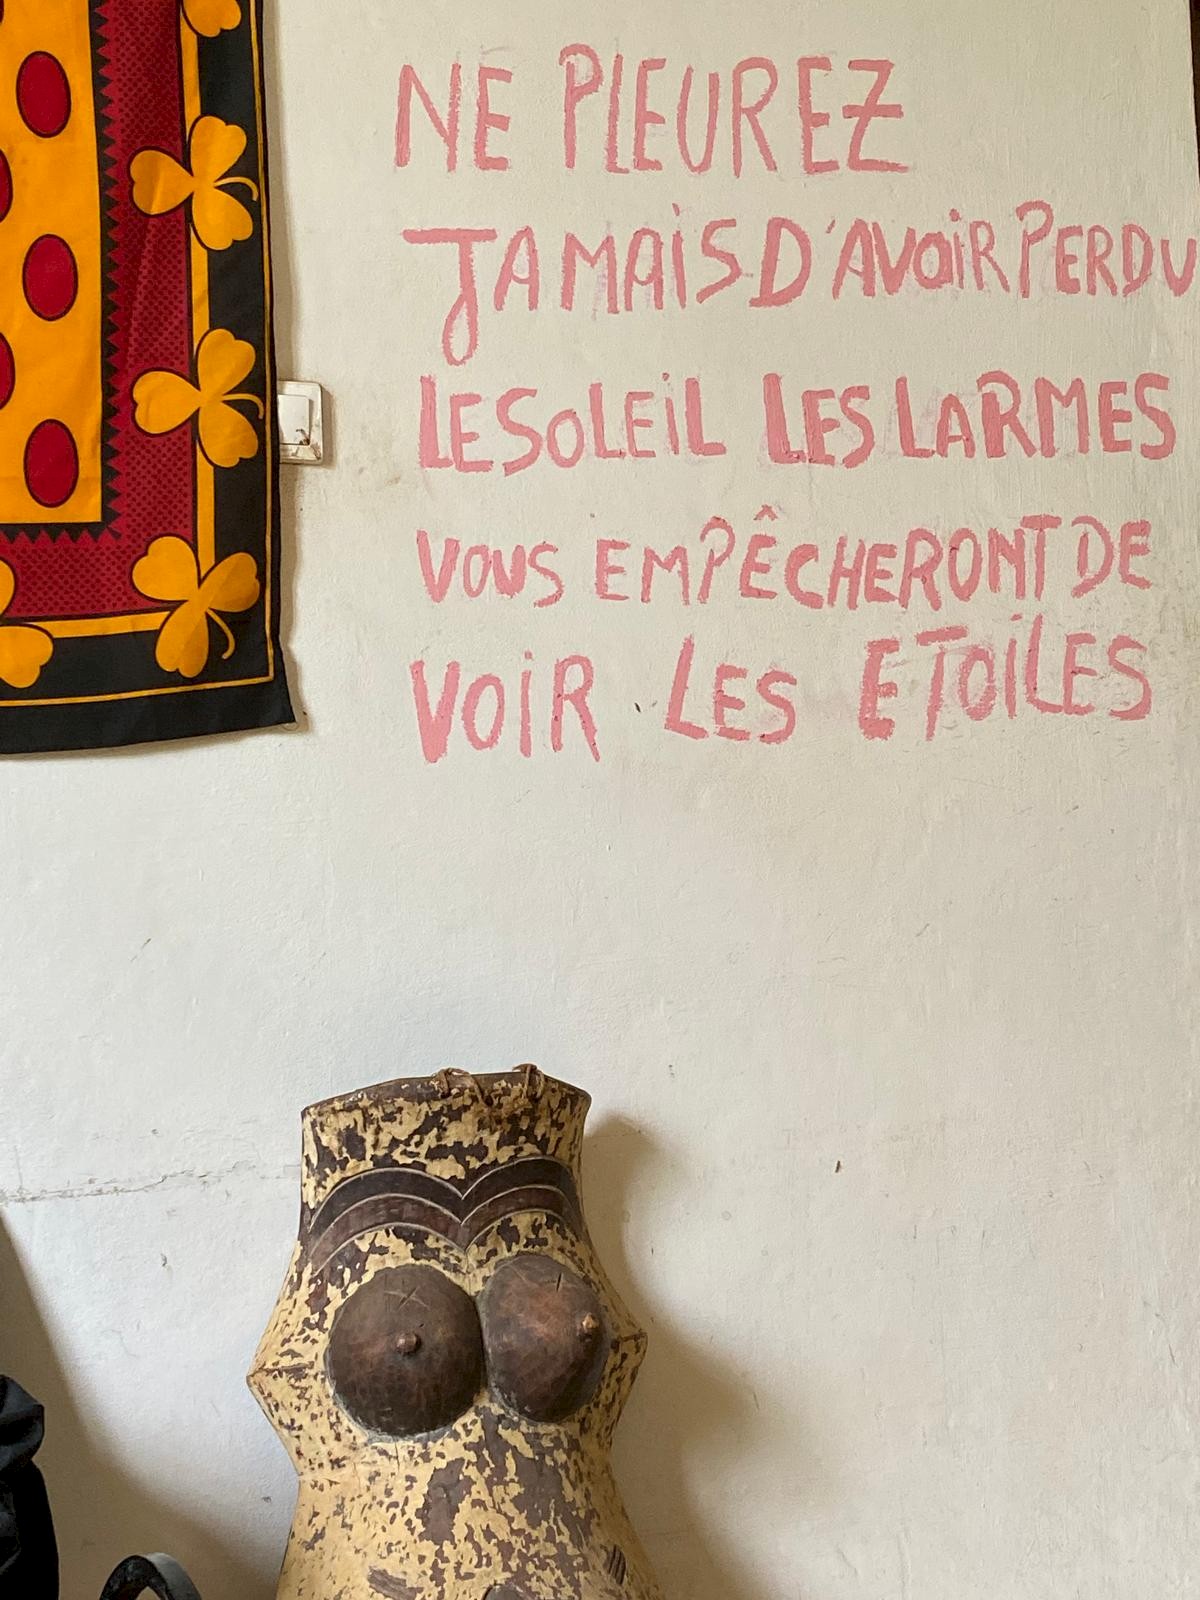 NE PLEUREZ
JAMAIS D'AVOIR PERDU
LE SOLEIL LES LARMES
VOUS EMPÊCHERONT DE
VOIR LES ETOILES